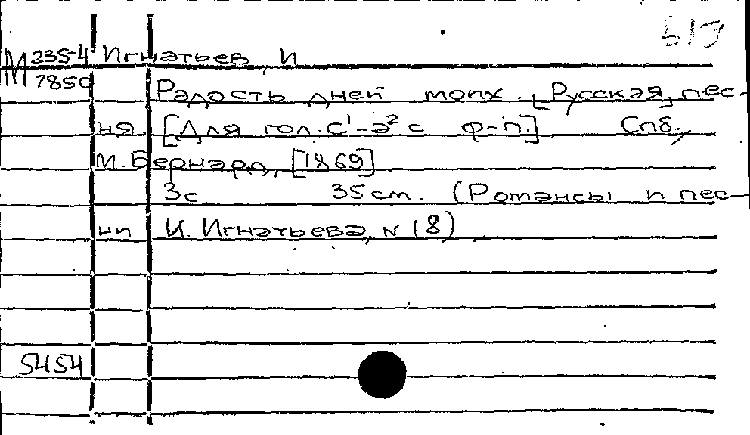 М 235-4 Игнатьев, И
7850
Радость дней моих. [Русская] пес-
ня [Для гол. с¹-а² с ф-п.] Спб,
М. Бернард, [1869]
3с 35см. (Романсы и пес-
ни И. Игнатьева, N 18)
5454